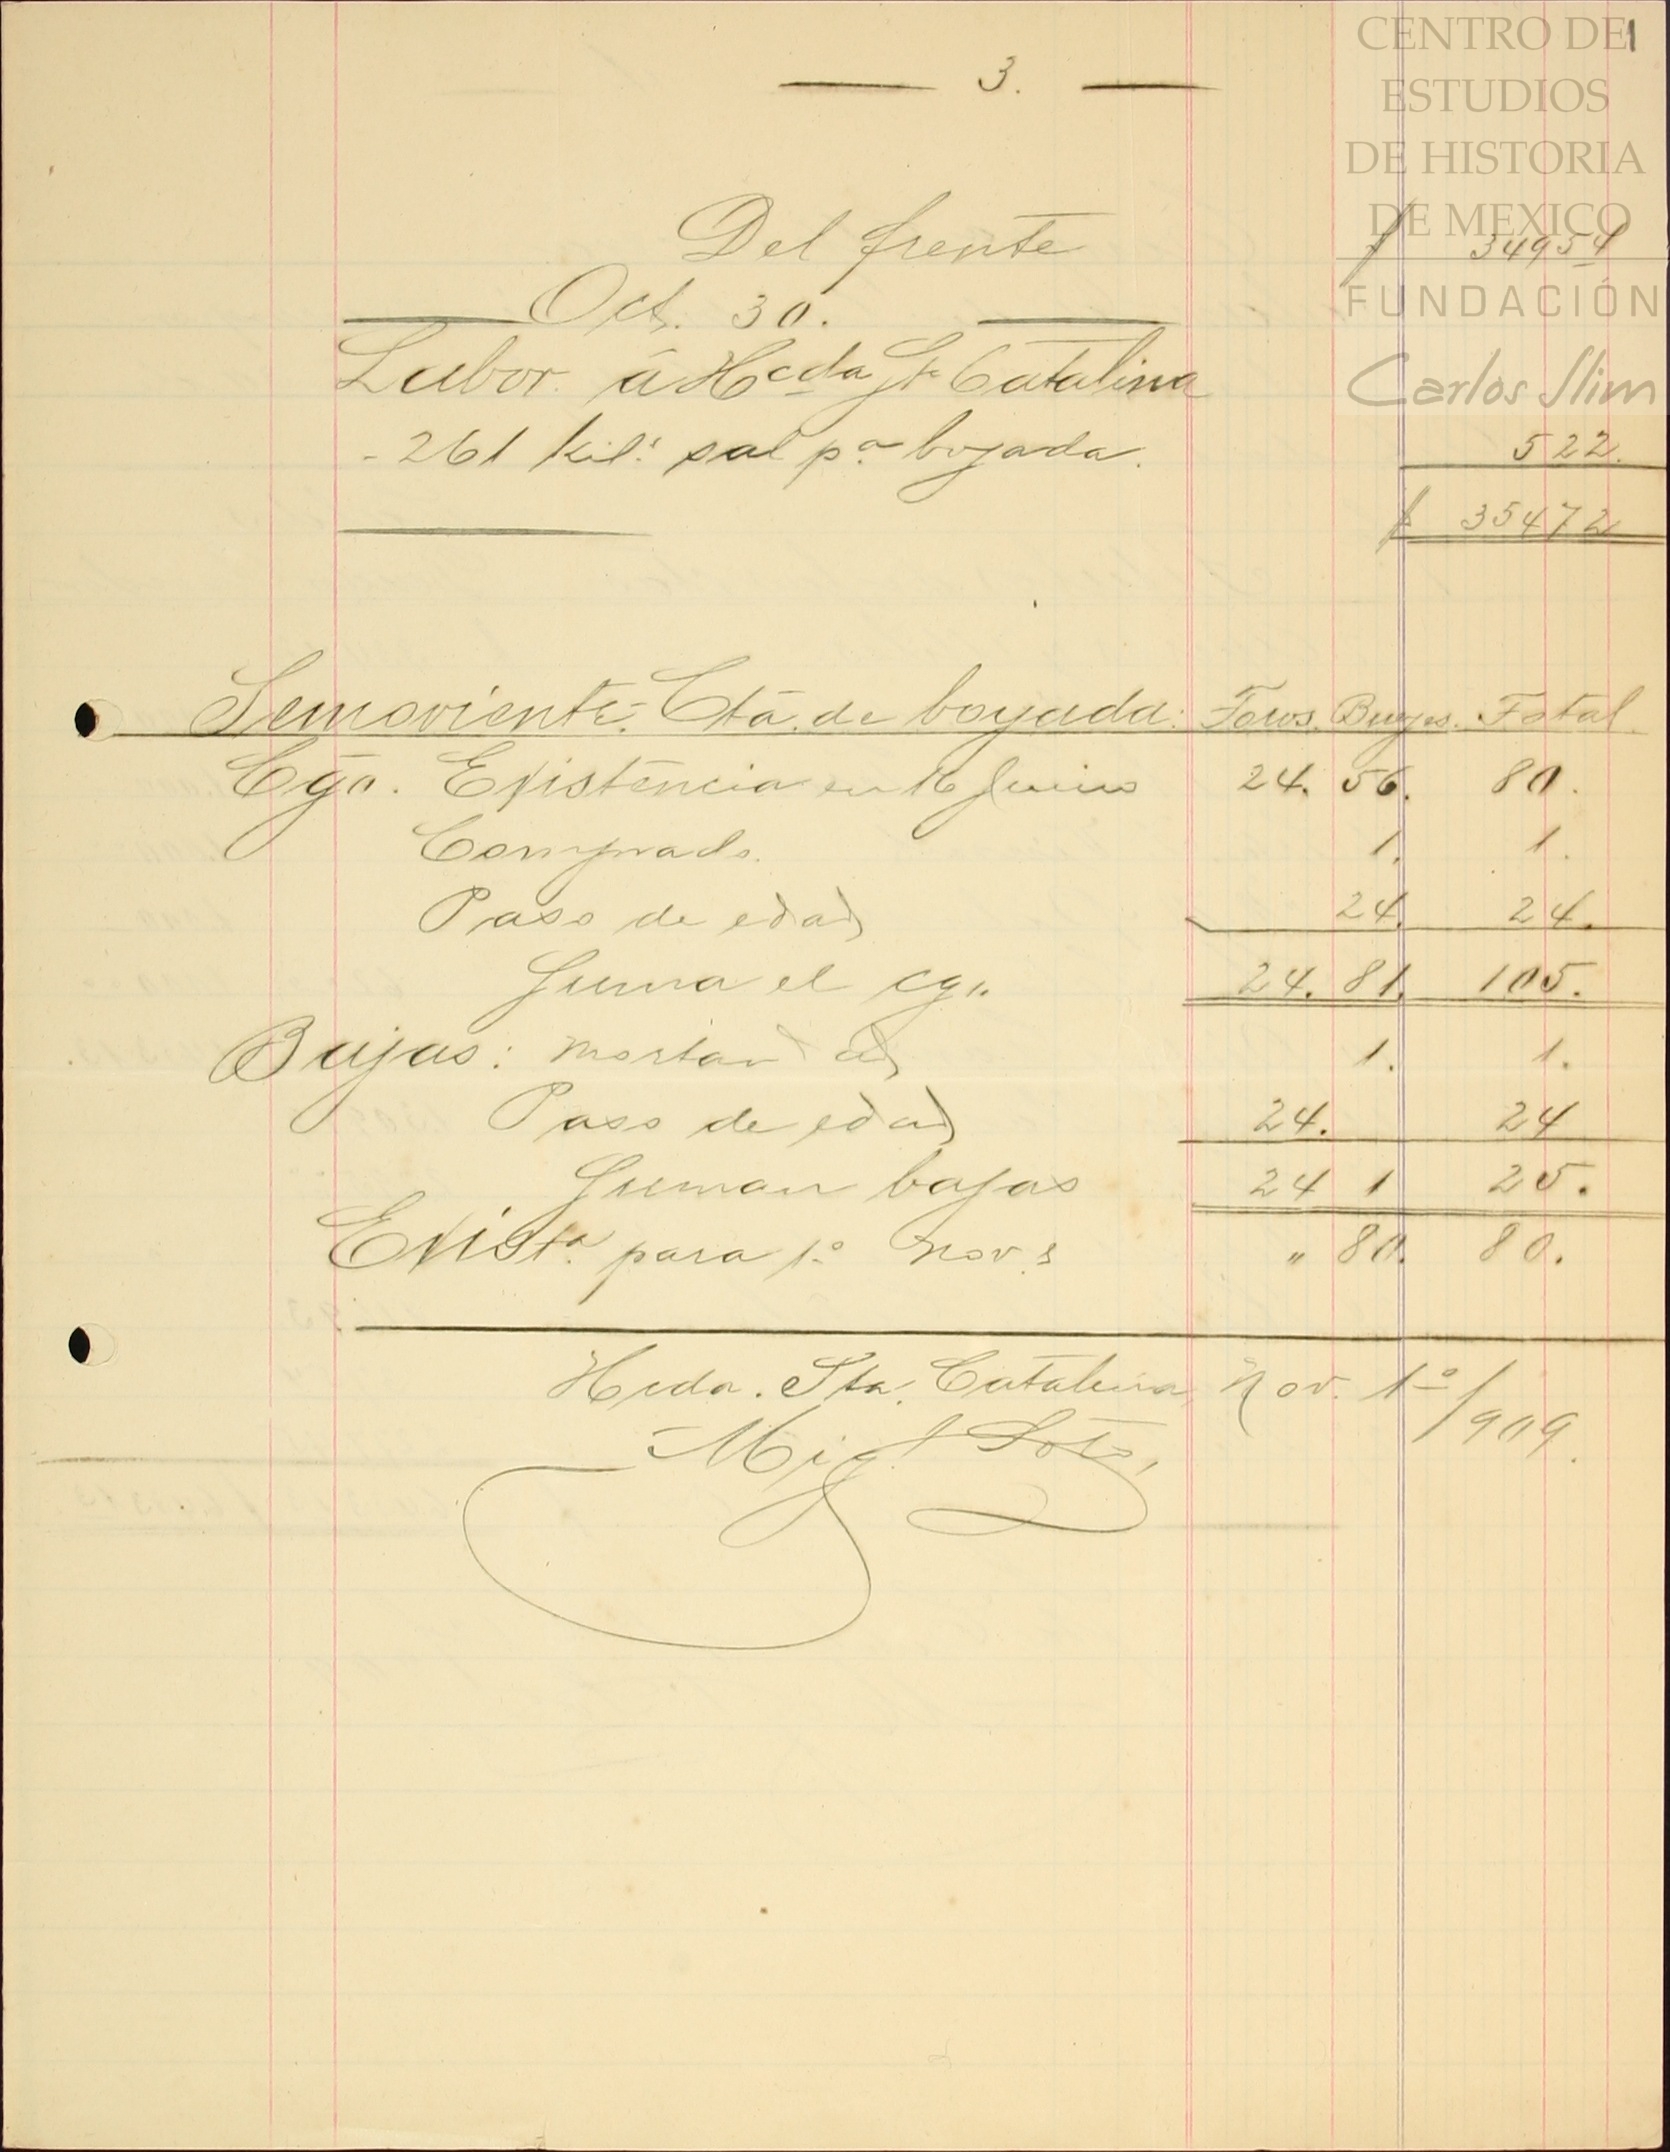 1
CENTRO DE
ESTUDIOS
DE HISTORIA
DE MEXICO
FUNDACIÓN
Carlos Slim
3.
Del frente $ 34954
Oct. 30.
Labor á Hcda Sta Catalina
-261 kils sal pa boyada. 522.
$ 35472
Semoviente. Cta. de boyada: Toros. Bueyes. Total
Cgo. Existencia en 16 Junio 24. 56. 80.
Comprado. 1. 1.
Paso de edad 24. 24.
Suma el cgo. 24. 81. 105.
Bajas: mortandad 1. 1.
Paso de edad 24. 24
Suman bajas 24 1 25.
Exista para 1o Nov. " 80. 80.
Hcda. Sta. Catalina, Nov. 1o/909.
Migl Soto,